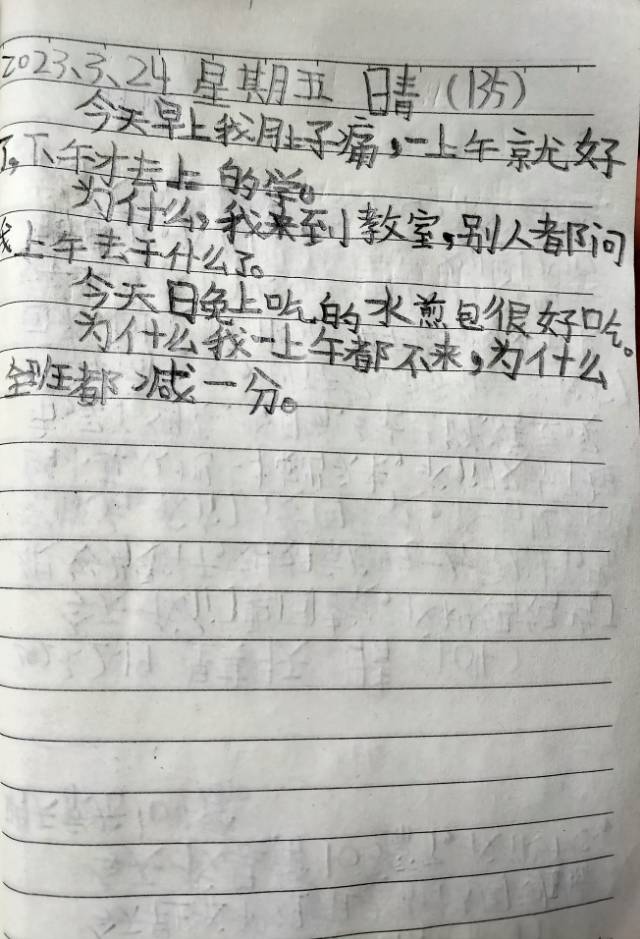 2023、3、24 星期五 晴 (135)
今天早上我肚子痛，一上午就好
了，下午才去上的学。
为什么，我来到教室，别人都问
我上午去干什么了。
今天日晚上吃的水煎包很好吃。
为什么我一上午都不来，为什么
全班都减一分。